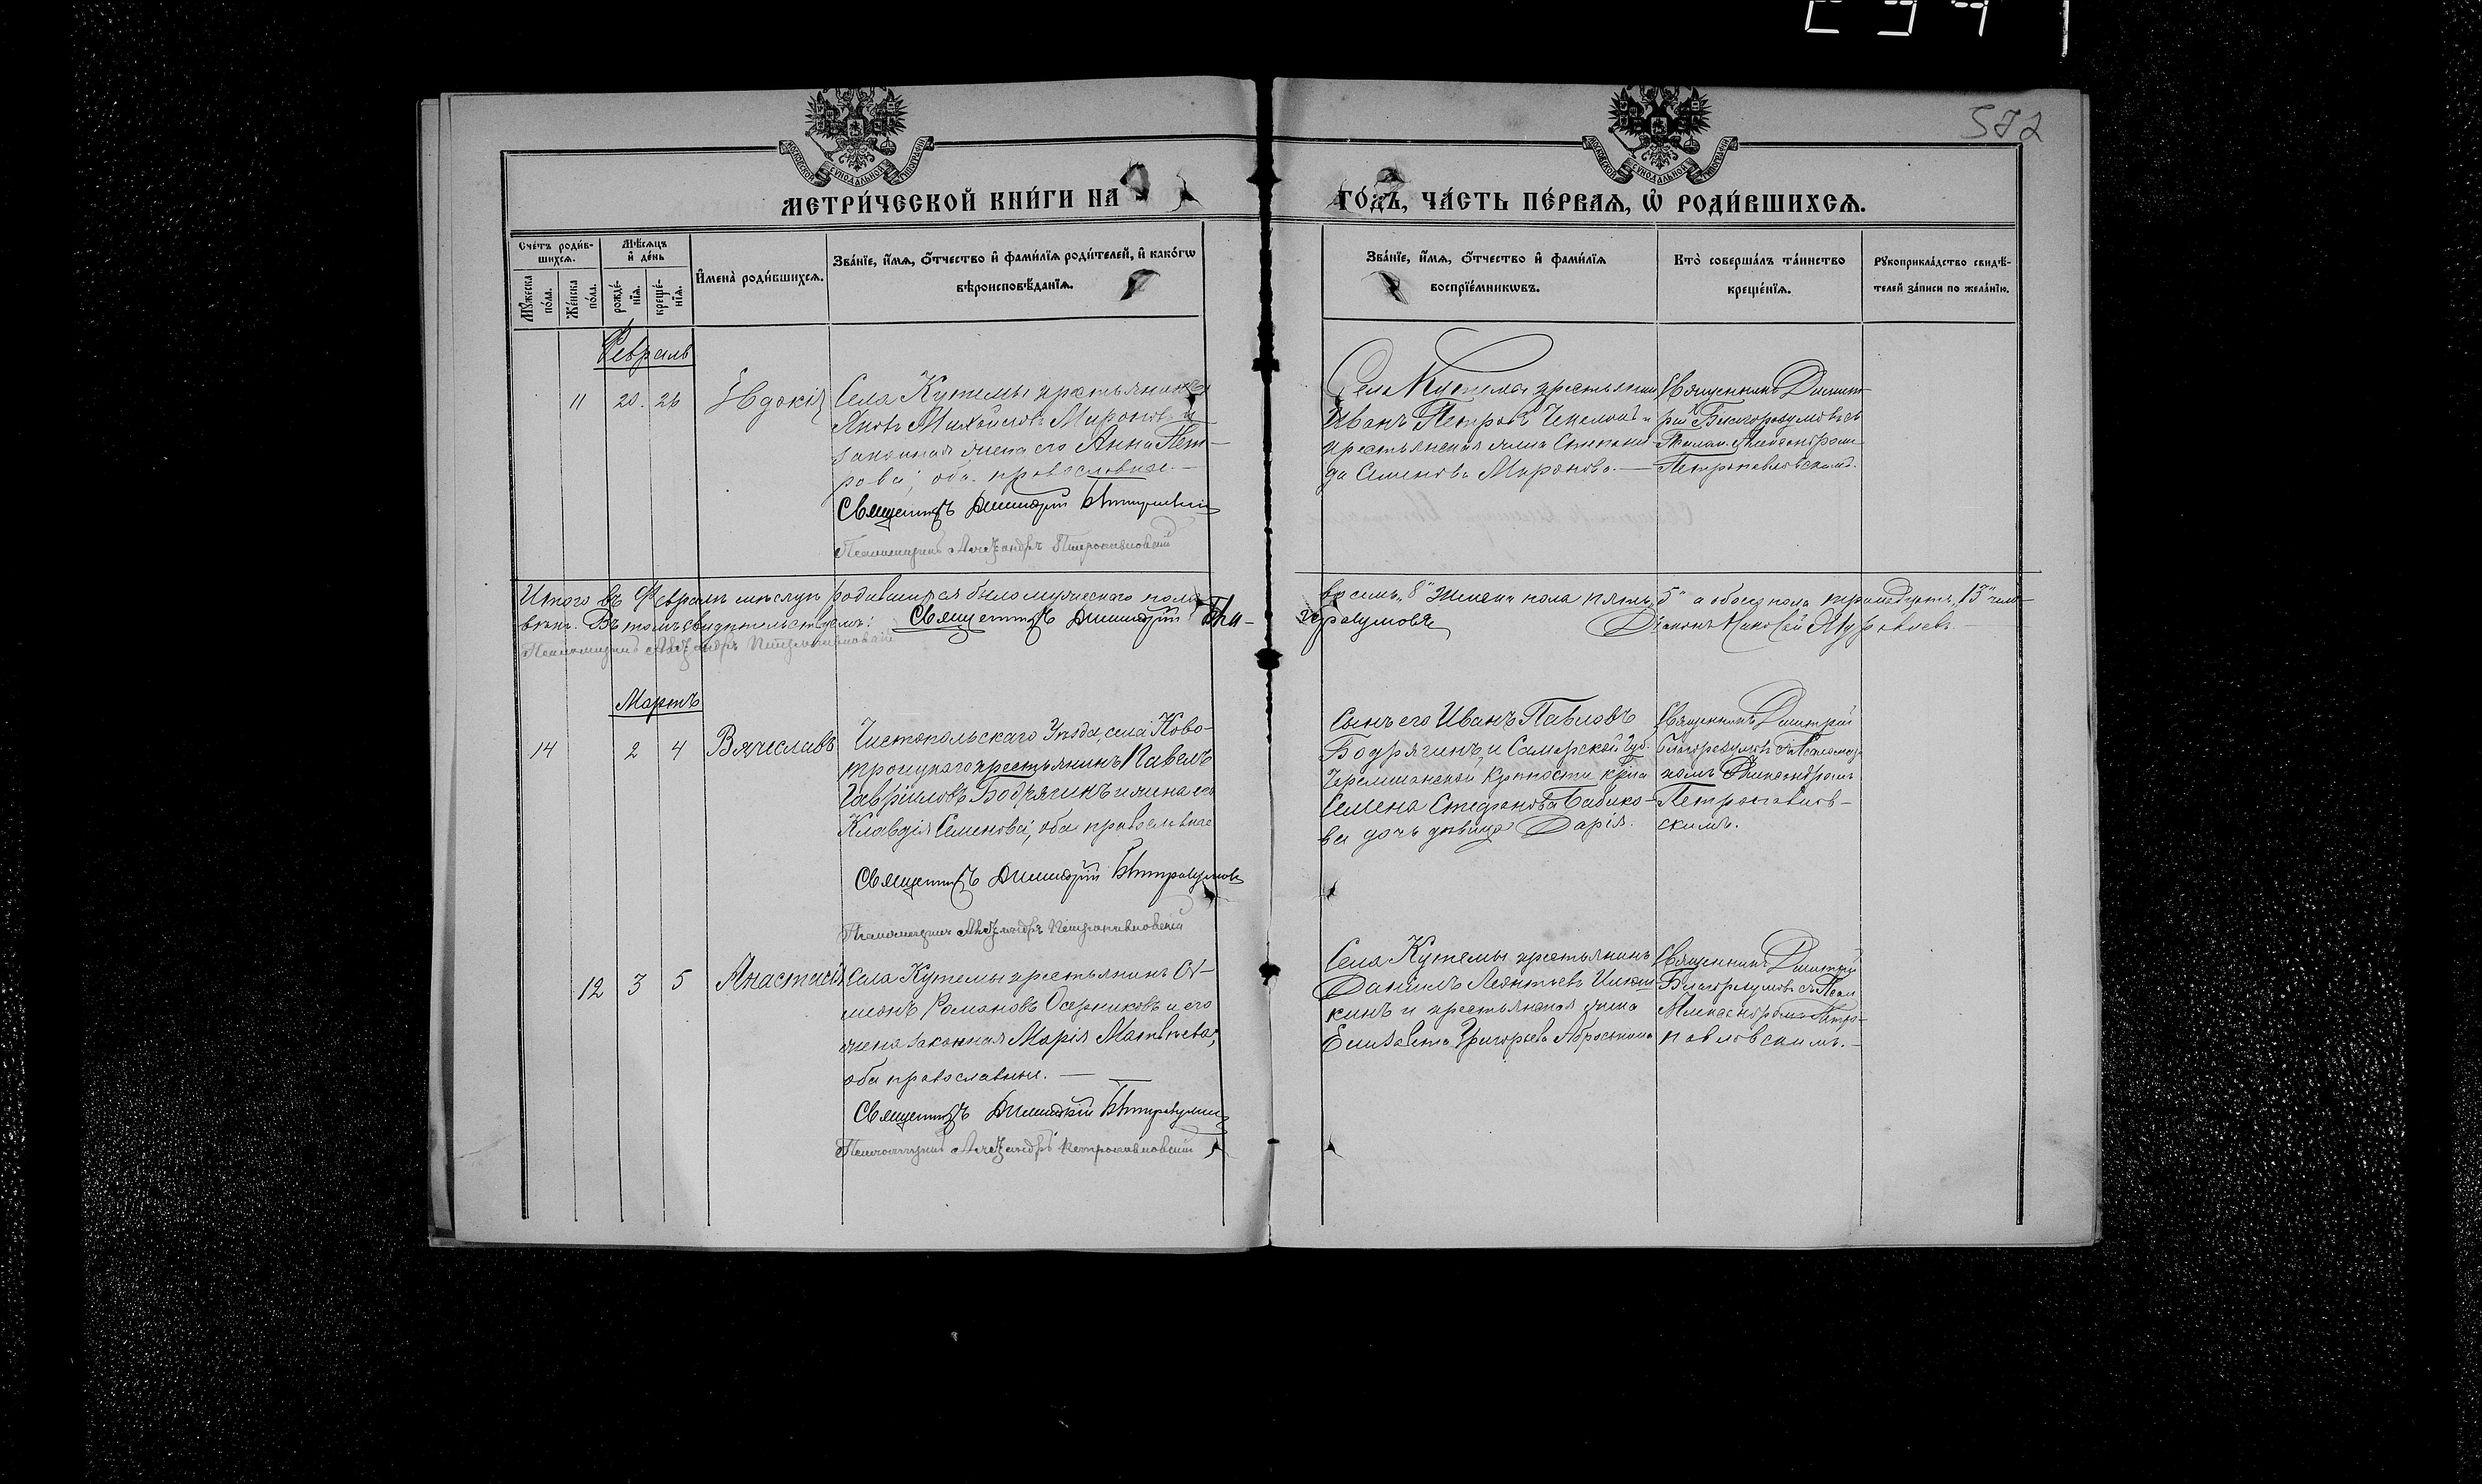 572
МОСКОВСКОЙ СѴНОДАЛЬНОЙ ТИПОГРАФІИ
МОСКОВСКОЙ СѴНОДАЛЬНОЙ ТИПОГРАФІИ
МЕТРИ́ЧЕСКОЙ КНИ́ГИ НА
ГО́ДЪ, ЧА́СТЬ ПЕ́РВАѦ, Ѡ҆ РОДИ́ВШИХСѦ.
Сче́тъ роди́в-
шихсѧ.
Мꙋ́жеска по́ла.
Же́нска по́ла.
Мѣ́сѧцъ и҆ де́нь
рожде́-
нїѧ.
креще́-
нїѧ.
И҆мена̀ роди́вшихсѧ.
Зва́нїе, и҆́мѧ, ѻ҆́тчество и҆ фами́лїѧ роди́телей, и҆ како́гѡ
вѣроисповѣ́данїѧ.
Зва́нїе, и҆́мѧ, ѻ҆́тчество и҆ фами́лїѧ
воспрїе́мникѡвъ.
Кто̀ соверша́лъ та́инство
креще́нїѧ.
Рꙋкоприкла́дство свидѣ́-
телей за́писи по жела́нїю.
Февраль
11 20. 26 Евдокія
Села Кутемы крестьянинъ
Яковъ Михайловъ Мироновъ и
законная жена его Анна Пет-
рова; оба православные.
Священникъ Димитрій Благоразумовъ
Псаломщикъ Александръ Петропавловскій
Села Кутемы крестьянинъ
Иванъ Петровъ и
крестьянская жена Степани-
да Семенова Миронова.
Священникъ Димит-
рій Благоразумовъ съ
Псалом. Александромъ
Петропавловскимъ.
Итого въ Февралѣ мѣсяцѣ родившихся было мужескаго пола восемь „8" женск. пола пять „5" а обоего пола тринадцать „13" чело-
вѣкъ. Въ томъ свидѣтельствуемъ: Священникъ Димитрій Благоразумовъ
Діаконъ Николай
Псаломщикъ Александръ Петропавловскій
Мартъ
14 2 4 Вячеславъ
Чистопольскаго Уѣзда, села Ново-
троицкаго крестьянинъ Павелъ
Гаврииловъ Бодрягинъ и жена его
Клавдія Семенова, оба православные
Священникъ Димитрій Благоразумовъ
Псаломщикъ Александръ Петропавловскій
Сынъ его Иванъ Павловъ
Бодрягинъ, и Самарской Губ.
Черемшанской Крѣпости
Семена Стефанова Бабико-
ва дочь дѣвица Дарія.
Священникъ Димитрій
Благоразумовъ съ Псаломщи-
комъ Александромъ
Петропавлов-
скимъ.
12 3 5 Анастасія
Села Кутемы крестьянинъ Си-
меонъ Романовъ Осерниковъ и его
жена законная Марія Матвѣева;
оба православные.
Священникъ Димитрій Благоразумовъ
Псаломщикъ Александръ Петропавловскій
Села Кутемы крестьянинъ
Даніилъ Леонтьевъ
кинъ и крестьянская жена
Елизавета Григорьева
Священникъ Димитрій
Благоразумовъ съ Псал.
Александромъ Петро-
павловскимъ.